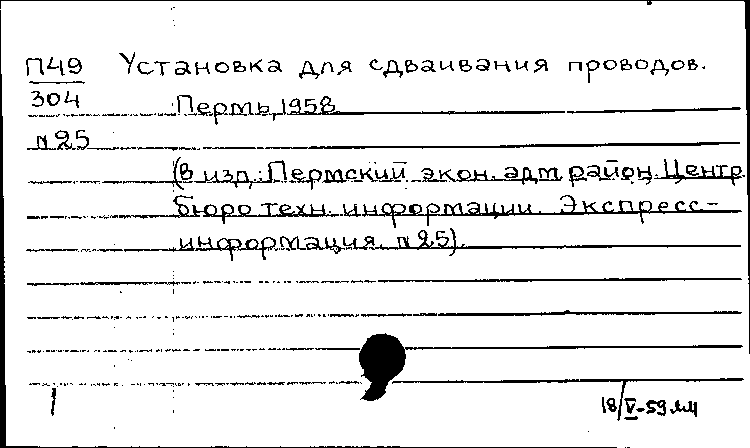 П49 Установка для сдваивания проводов.
304 Пермь, 1958
N25
(в изд.: Пермский экон. адм район. Центр
бюро техн. информации. Экспресс-
информация. N25).
18/V-59 мм